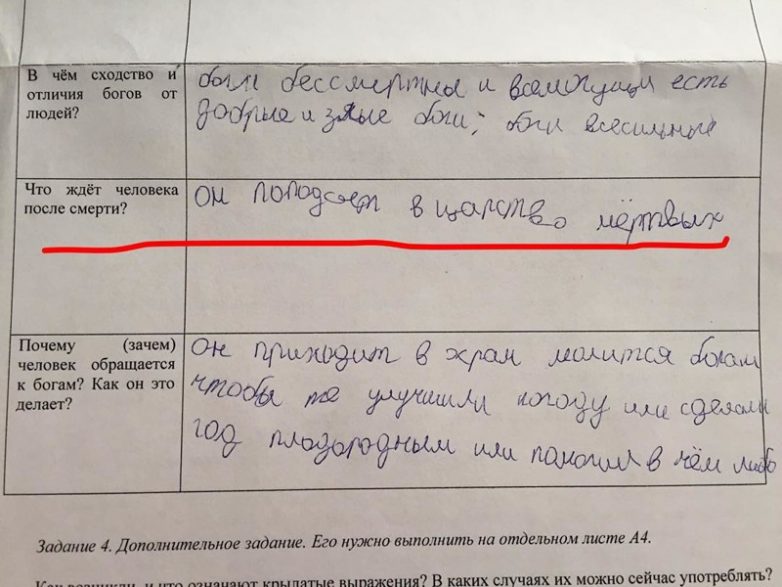 В чём сходство и
отличия богов от
людей?
боги бессмертны и всемогущи есть
добрые и злые боги; боги всесильные
Что ждёт человека
после смерти?
он попадает в царство мёртвых
Почему (зачем)
человек обращается
к богам? Как он это
делает?
Он приходит в храм молится богам
чтобы те улучшили погоду или сделали
год плодородным или помогли в чём либо
Задание 4. Дополнительное задание. Его нужно выполнить на отдельном листе А4.
Как возникли, и что означают крылатые выражения? В каких случаях их можно сейчас употреблять?